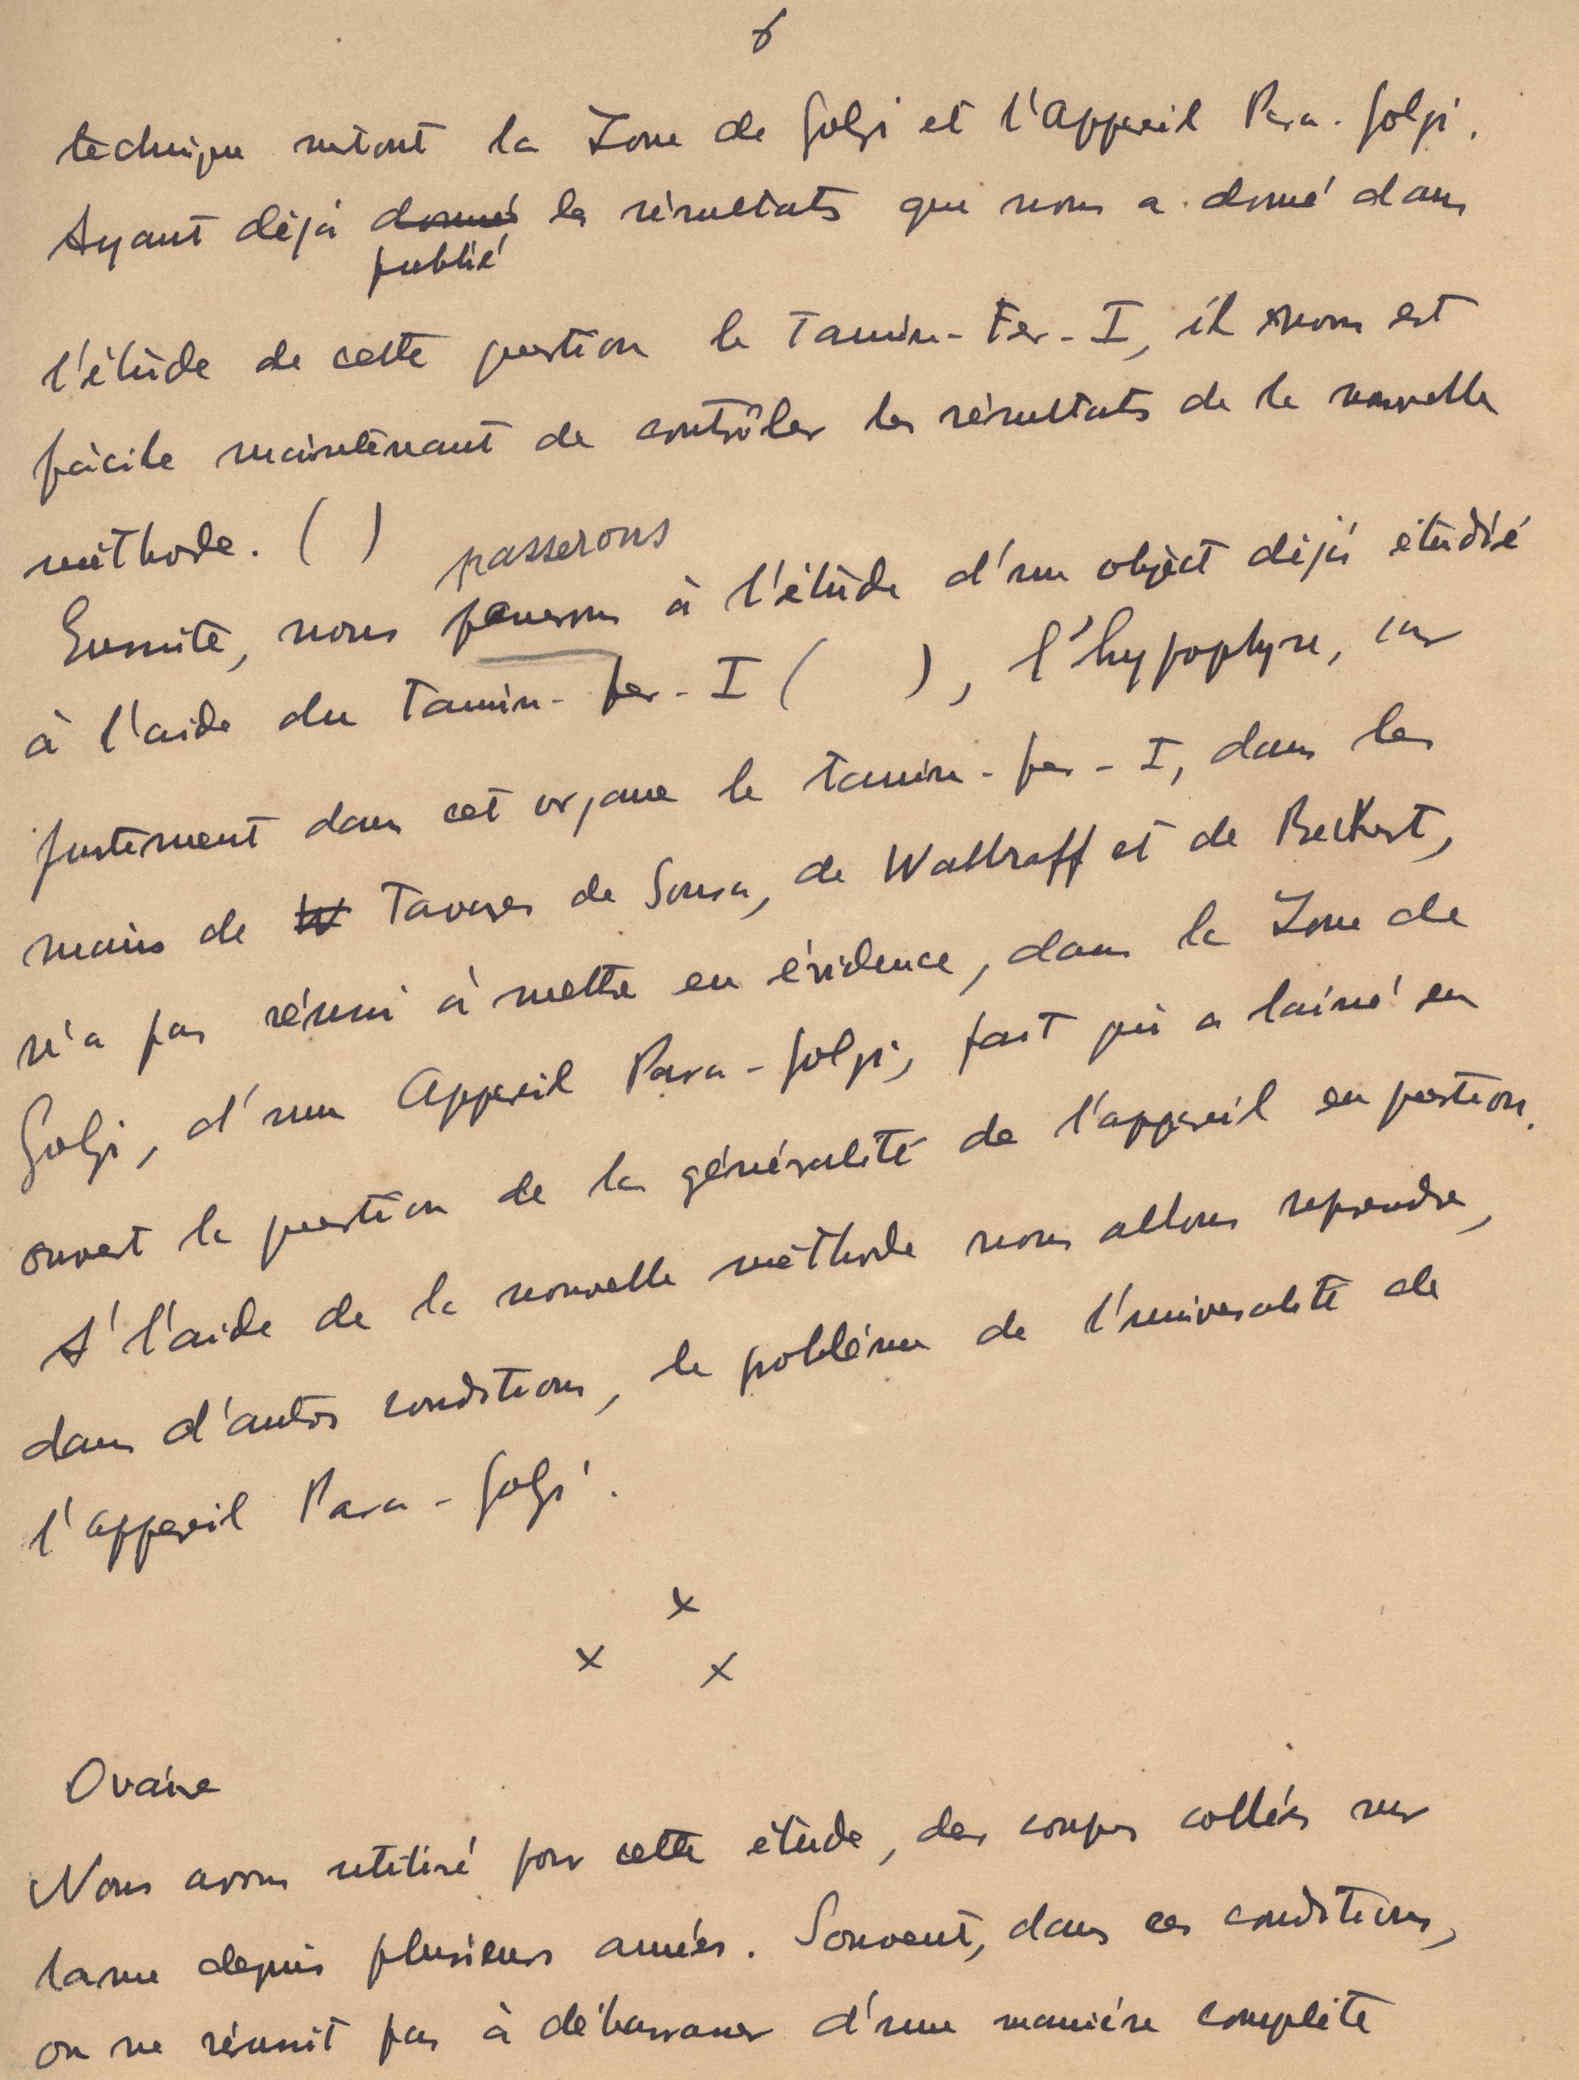 6
technique surtout la Zone de Golgi et l'Appareil Para-Golgi.
Ayant déjà donné les résultats que nous a donné dans
publié
l'étude de cette question le Tannin-Fer-I, il nous est
facile maintenant de contrôler les résultats de la nouvelle
méthode. ( )
passerons
Ensuite, nous passerons à l'étude d'un object déjà étudié
à l'aide du Tannin-fer-I ( ), l'hypophyse, car
justement dans cet organe le Tannin-fer-I, dans les
mains de W Tavares de Sousa, de Wallraff et de Beckert,
n'a pas réussi à mettre en évidence, dans la Zone de
Golgi, d'un Appareil Para-Golgi, fait qui a laissé en
ouvert la question de la généralité de l'appareil en question.
A' l'aide de la nouvelle méthode nous allons reprendre,
dans d'autres conditions, le problème de l'universalité de
l'appareil Para-Golgi.
x
x x
Ovaire
Nous avons utilisé pour cette étude, des coupes collées sur
lame depuis plusieurs années. Souvent, dans ces conditions,
on ne réussit pas à débarrasser d'une manière complète